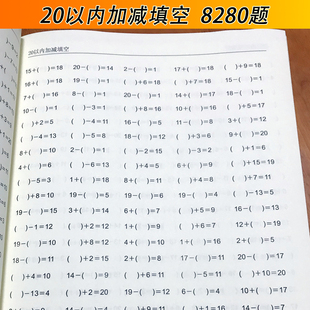 20以内加减填空 8280题
20以内加减填空
15+( )=18 20−( )=14 2−( )=1 17+( )=18 ( )+9=18
16+( )=18 19−( )=1 ( )+6=18 ( )+7=18 15−( )=1
7+( )=16 8−( )=1 ( )+8=16 10+( )=16 ( )+5=17
10−( )=1 ( )−3=1 ( )+8=16 ( )+10=15 14+( )=17
( )+2=5 ( )−4=1 16−( )=5 ( )−8=11 ( )−3=8
( )−4=13 ( )−5=8 18−( )=12 ( )+3=6 9+( )=20
8+( )=10 ( )−2=2 ( )−15=2 ( )−3=2 ( )+1=6
4+( )=6 ( )−6=13 ( )+4=5 6+( )=9 ( )+15=19
( )−5=3 1+( )=18 8+( )=11 ( )+4=8 ( )+12=17
( )+8=10 19−( )=5 ( )+9=10 19−( )=6 ( )−13=5
19−( )=15 3+( )=14 6+( )=7 ( )+5=9 16−( )=13
( )−1=12 ( )+2=12 1+( )=5 ( )+1=9 ( )+12=19
19−( )=11 ( )+8=12 10+( )=12 4+( )=10 5+( )=17
19−( )=10 ( )+4=15 1+( )=16 2+( )=5
( )+4=10 14−( )=9 ( )+6=11 ( )−5=11 ( )+10=20
( )−13=4 ( )+2=20 19−( )=2 6−( )=4 10+( )=17
( )+9=11 ( )+1=16 14−( )=7